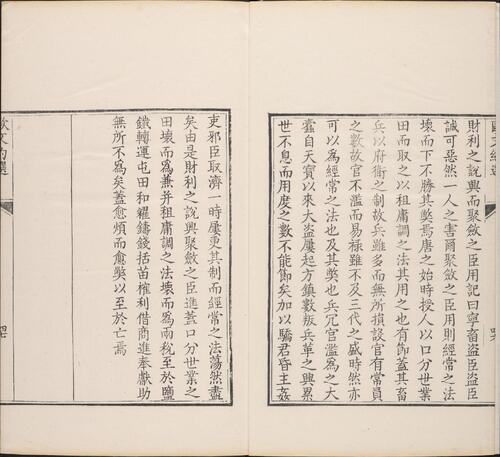 財利之說興而聚斂之臣用記曰寧畜盜臣盜臣
誠可惡然一人之害爾聚斂之臣用則經常之法
壞而下不勝其獘焉唐之始時授人以口分世業
田而取之以租庸調之法其用之也有節蓋其畜
兵以府衛之制故兵雖多而無所損設官有常員
之數故官不濫而易祿雖不及三代之盛時然亦
可以為經常之法也及其獘也兵冗官濫為之大
蠹自天寶以來大盜屢起方鎮數叛兵革之興累
世不息而用度之數不能節矣加以驕君昏主姦
吏邪臣取濟一時屢更其制而經常之法蕩然盡
矣由是財利之說興聚斂之臣進蓋口分世業之
田壞而為兼并租庸調之法壞而為兩稅至於鹽
鐵轉運屯田和糴鑄錢括苗榷利借商進奉獻助
無所不為矣蓋愈煩而愈獘以至於亡焉